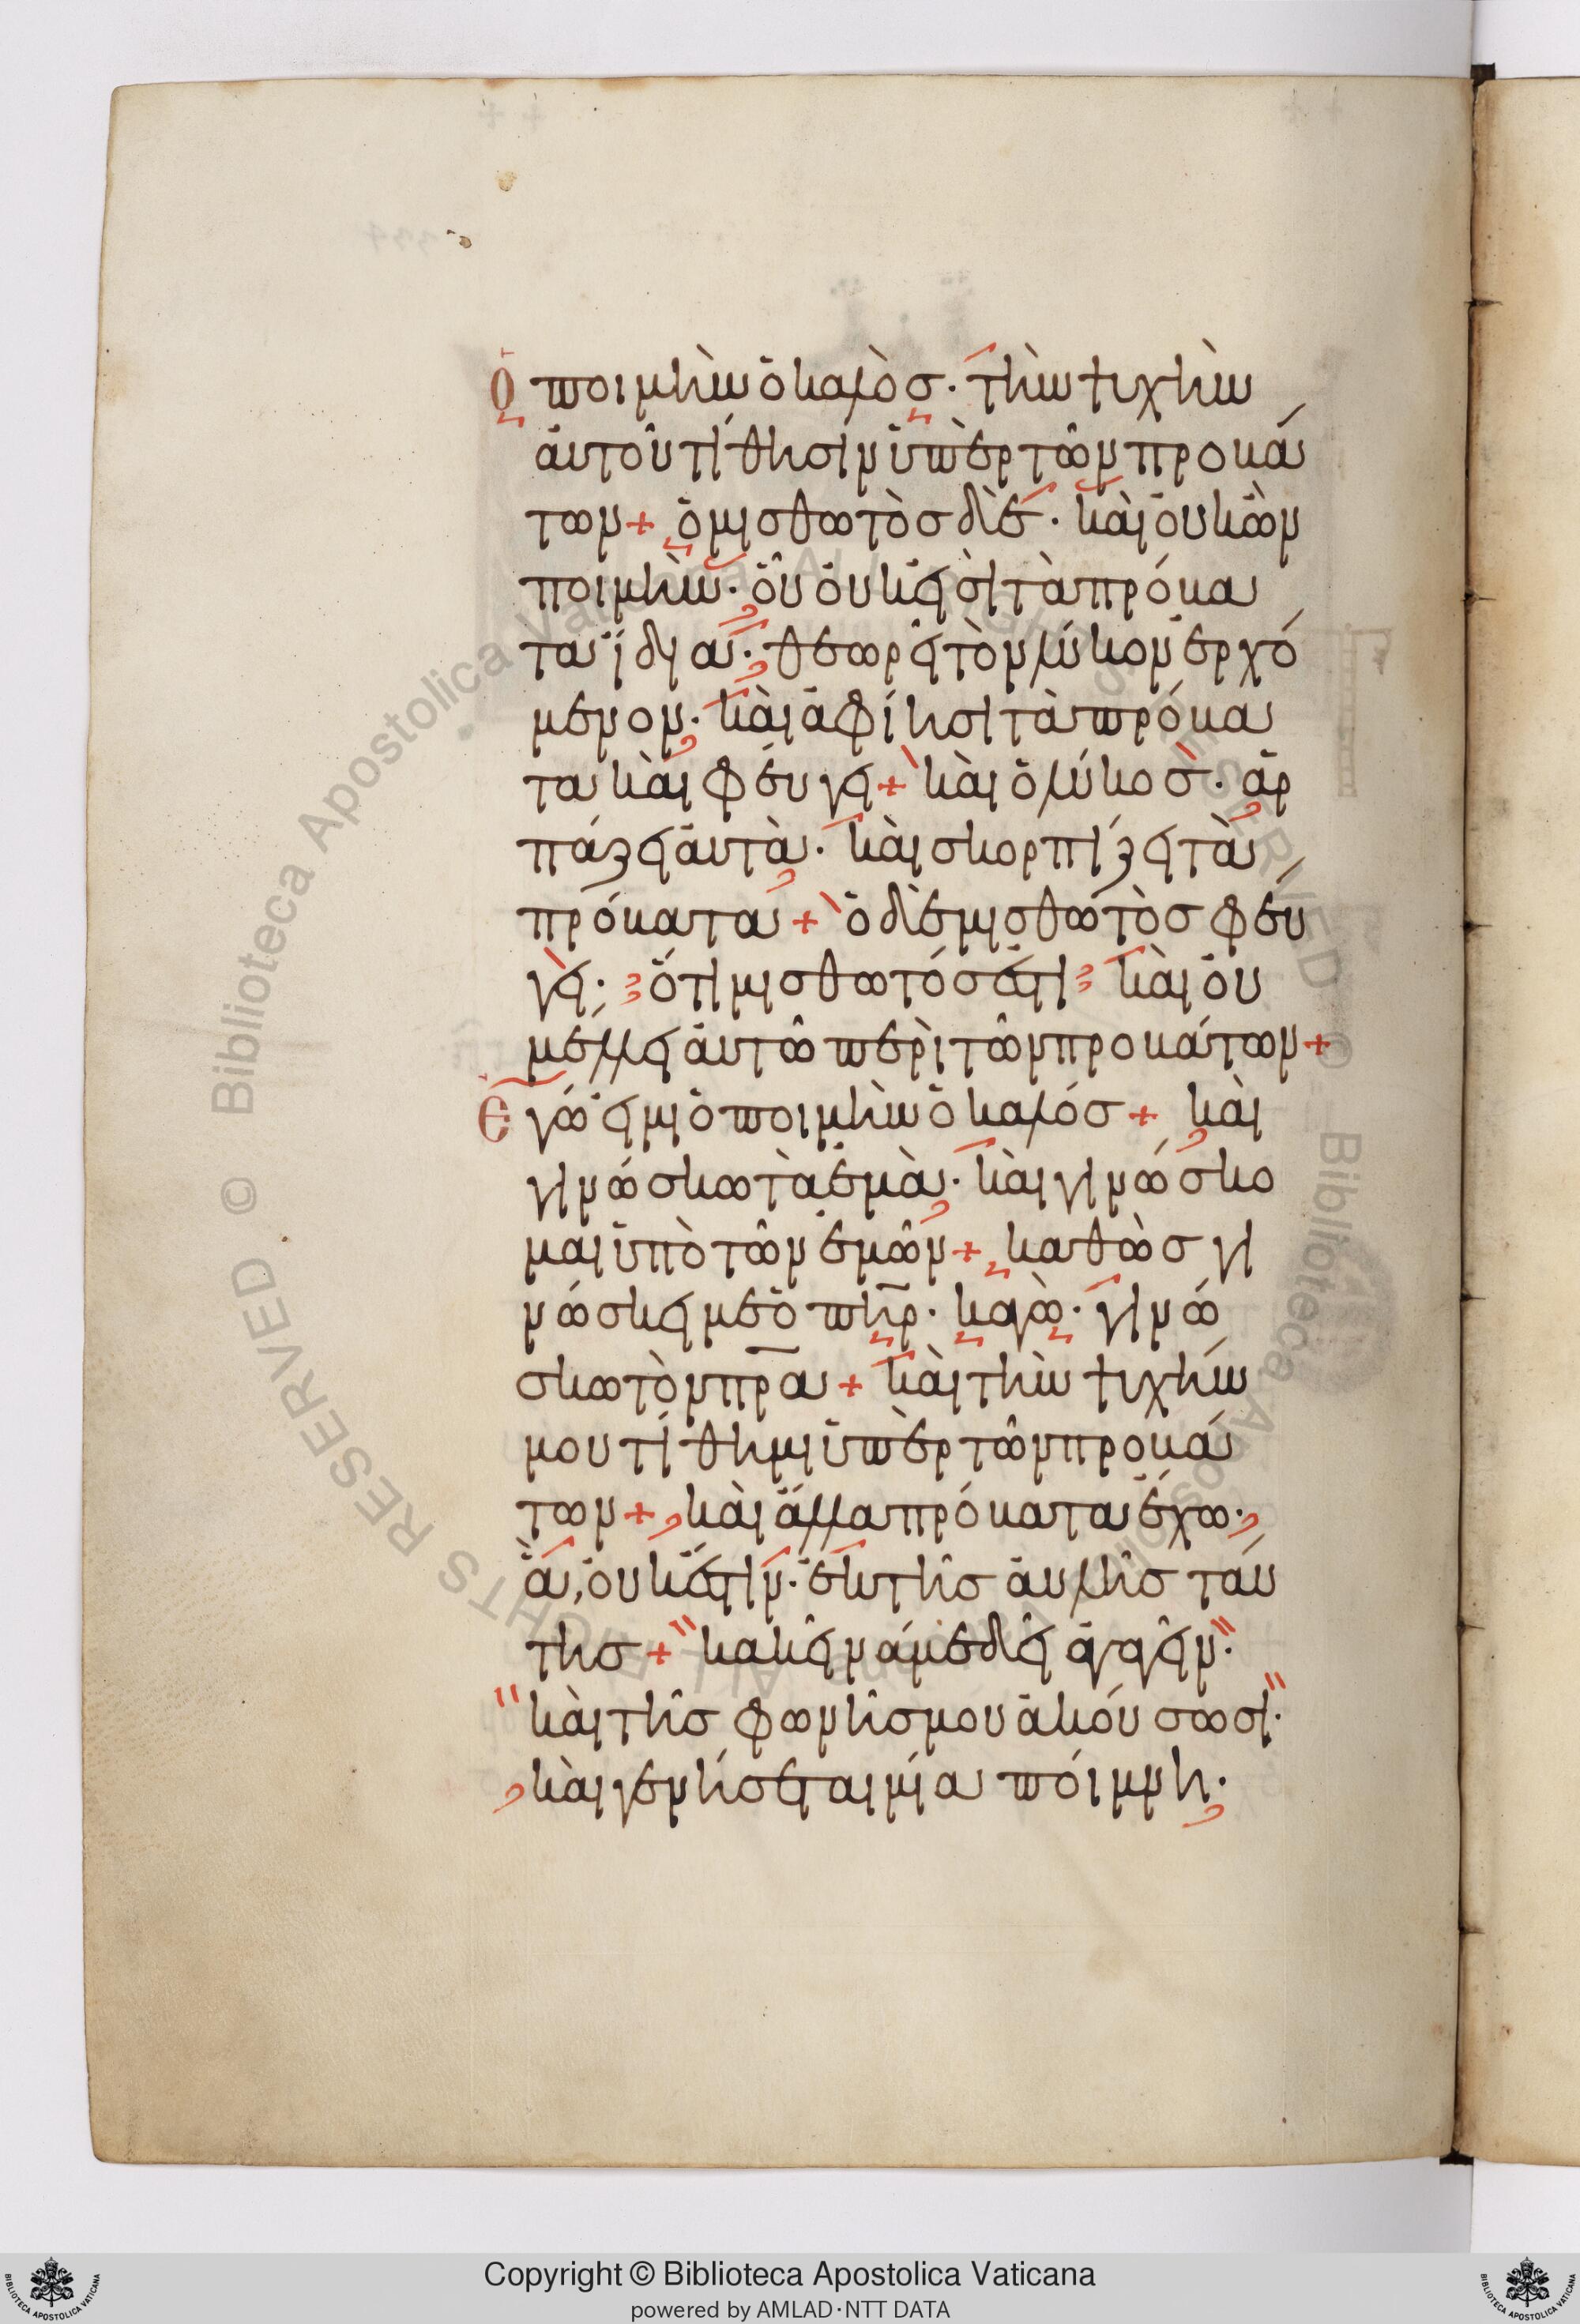 Ὁ ποιμὴν ὁ καλὸσ· τὴν ψυχὴν
ἀυτοῦ τίθησιν ὑπὲρ τῶν προβά
των + ὁ μισθωτὸσ δὲ· κὰι ὀυκ ὢν
ποιμὴν· ὃυ ὀυκ ἐισὶ τὰ πρόβα
τα ἴδια· θεωρεῖ τὸν λύκον ἐρχό
μενον· κὰι ἀφίησι τὰ πρόβα
τα κὰι φέυγει + κὰι ὁ λύκοσ· ἁρ
πάζει ἀυτὰ· κὰι σκορπίζει τὰ
πρόβατα + ὁ δὲ μισθωτὸσ φέυ
γει· ὅτι μισθωτόσ ἐστι κὰι ὀυ
μέλλει ἀυτῶ περὶ τῶν προβάτων +
Ἐγώ ἐιμι ὁ ποιμὴν ὁ καλόσ + κὰι
γινώσκω τὰ ἐμὰ· κὰι γινώσκο
μαι ὑπὸ τῶν ἐμῶν + καθὼσ γι
νώσκει με ὁ πη̅ρ· κἀγὼ· γινώ
σκω τὸν πρ̅α + κὰι τὴν ψυχήν
μου τίθημι ὑπὲρ τῶν προβά
των + κὰι ἄλλα πρόβατα ἔχω·
ἃ, ὀυκ ἔστιν· ἐκ τῆσ ἀυλῆσ τάυ
τησ + κακεῖνά με δεῖ ἀγαγεῖν·
κὰι τῆσ φωνῆσ μου ἀκόυσωσι·
κὰι γενήσεται μία πόιμνη·
Copyright © Biblioteca Apostolica Vaticana
powered by AMLAD·NTT DATA